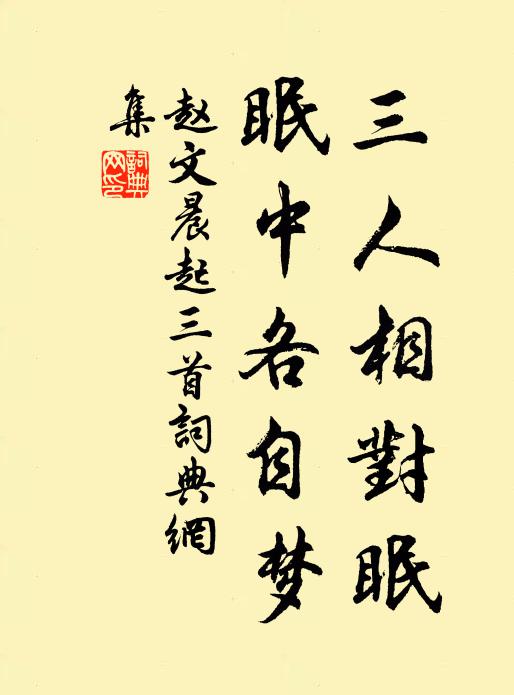 三人相對眠
眠中各自梦
赵文晨起三首詞典網
集
詞典
网印